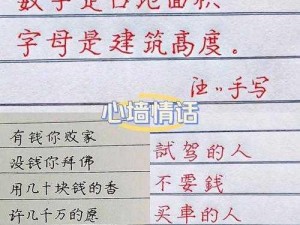 数字是占地面积
字母是建筑高度。
浊..手写
心墙情话
有钱你败家
没钱你拜佛
用几十块钱的香
许几千万的愿
試驾的人
不要錢
买車的人